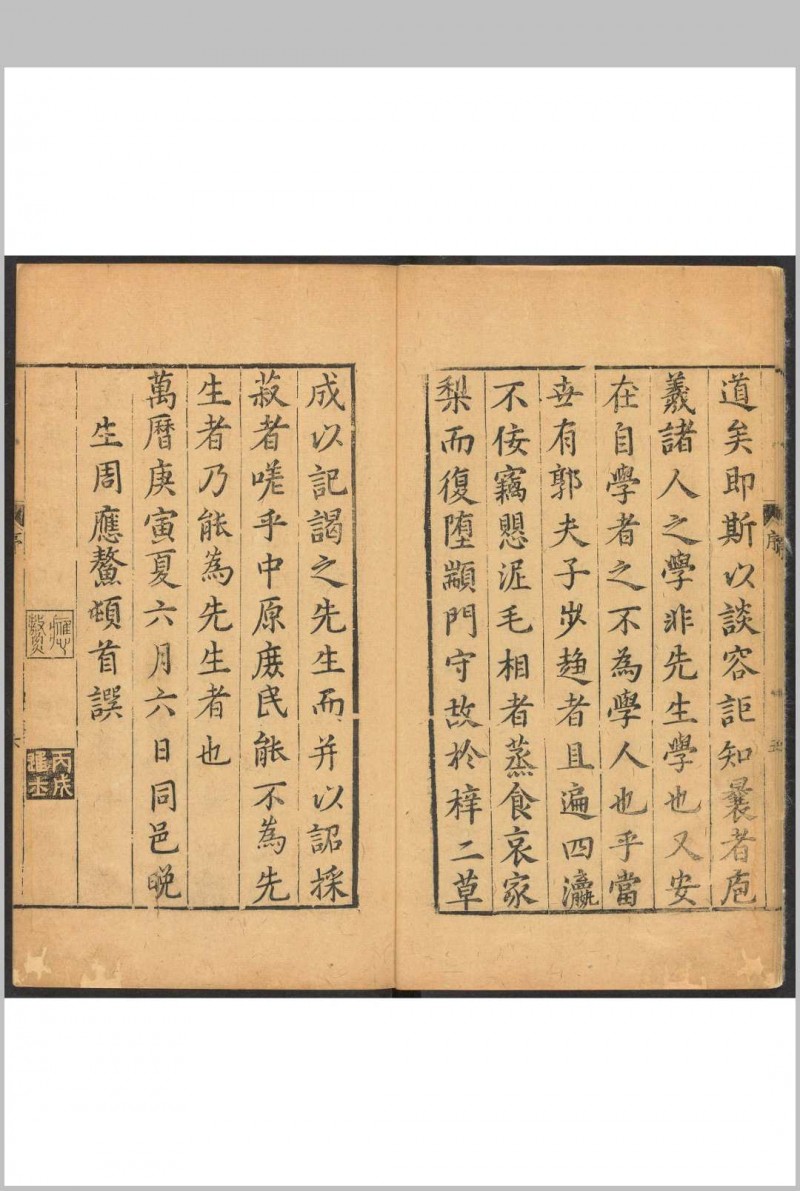 道矣即斯以談容詎知曩者庖
羲諸人之學非先生學也又安
在自學者之不為學人也乎當
世有郭夫子步趨者且遍四瀛
不佞竊懸泥毛相者蒸食哀家
梨而復墮顓門守故於梓二草
序
成以記謁之先生而并以詔採
菽者嗟乎中原庶民能不為先
生者乃能為先生者也
萬曆庚寅夏六月六日同邑晚
生周應鰲頓首譔
應鰲
丙戌進士
序
六